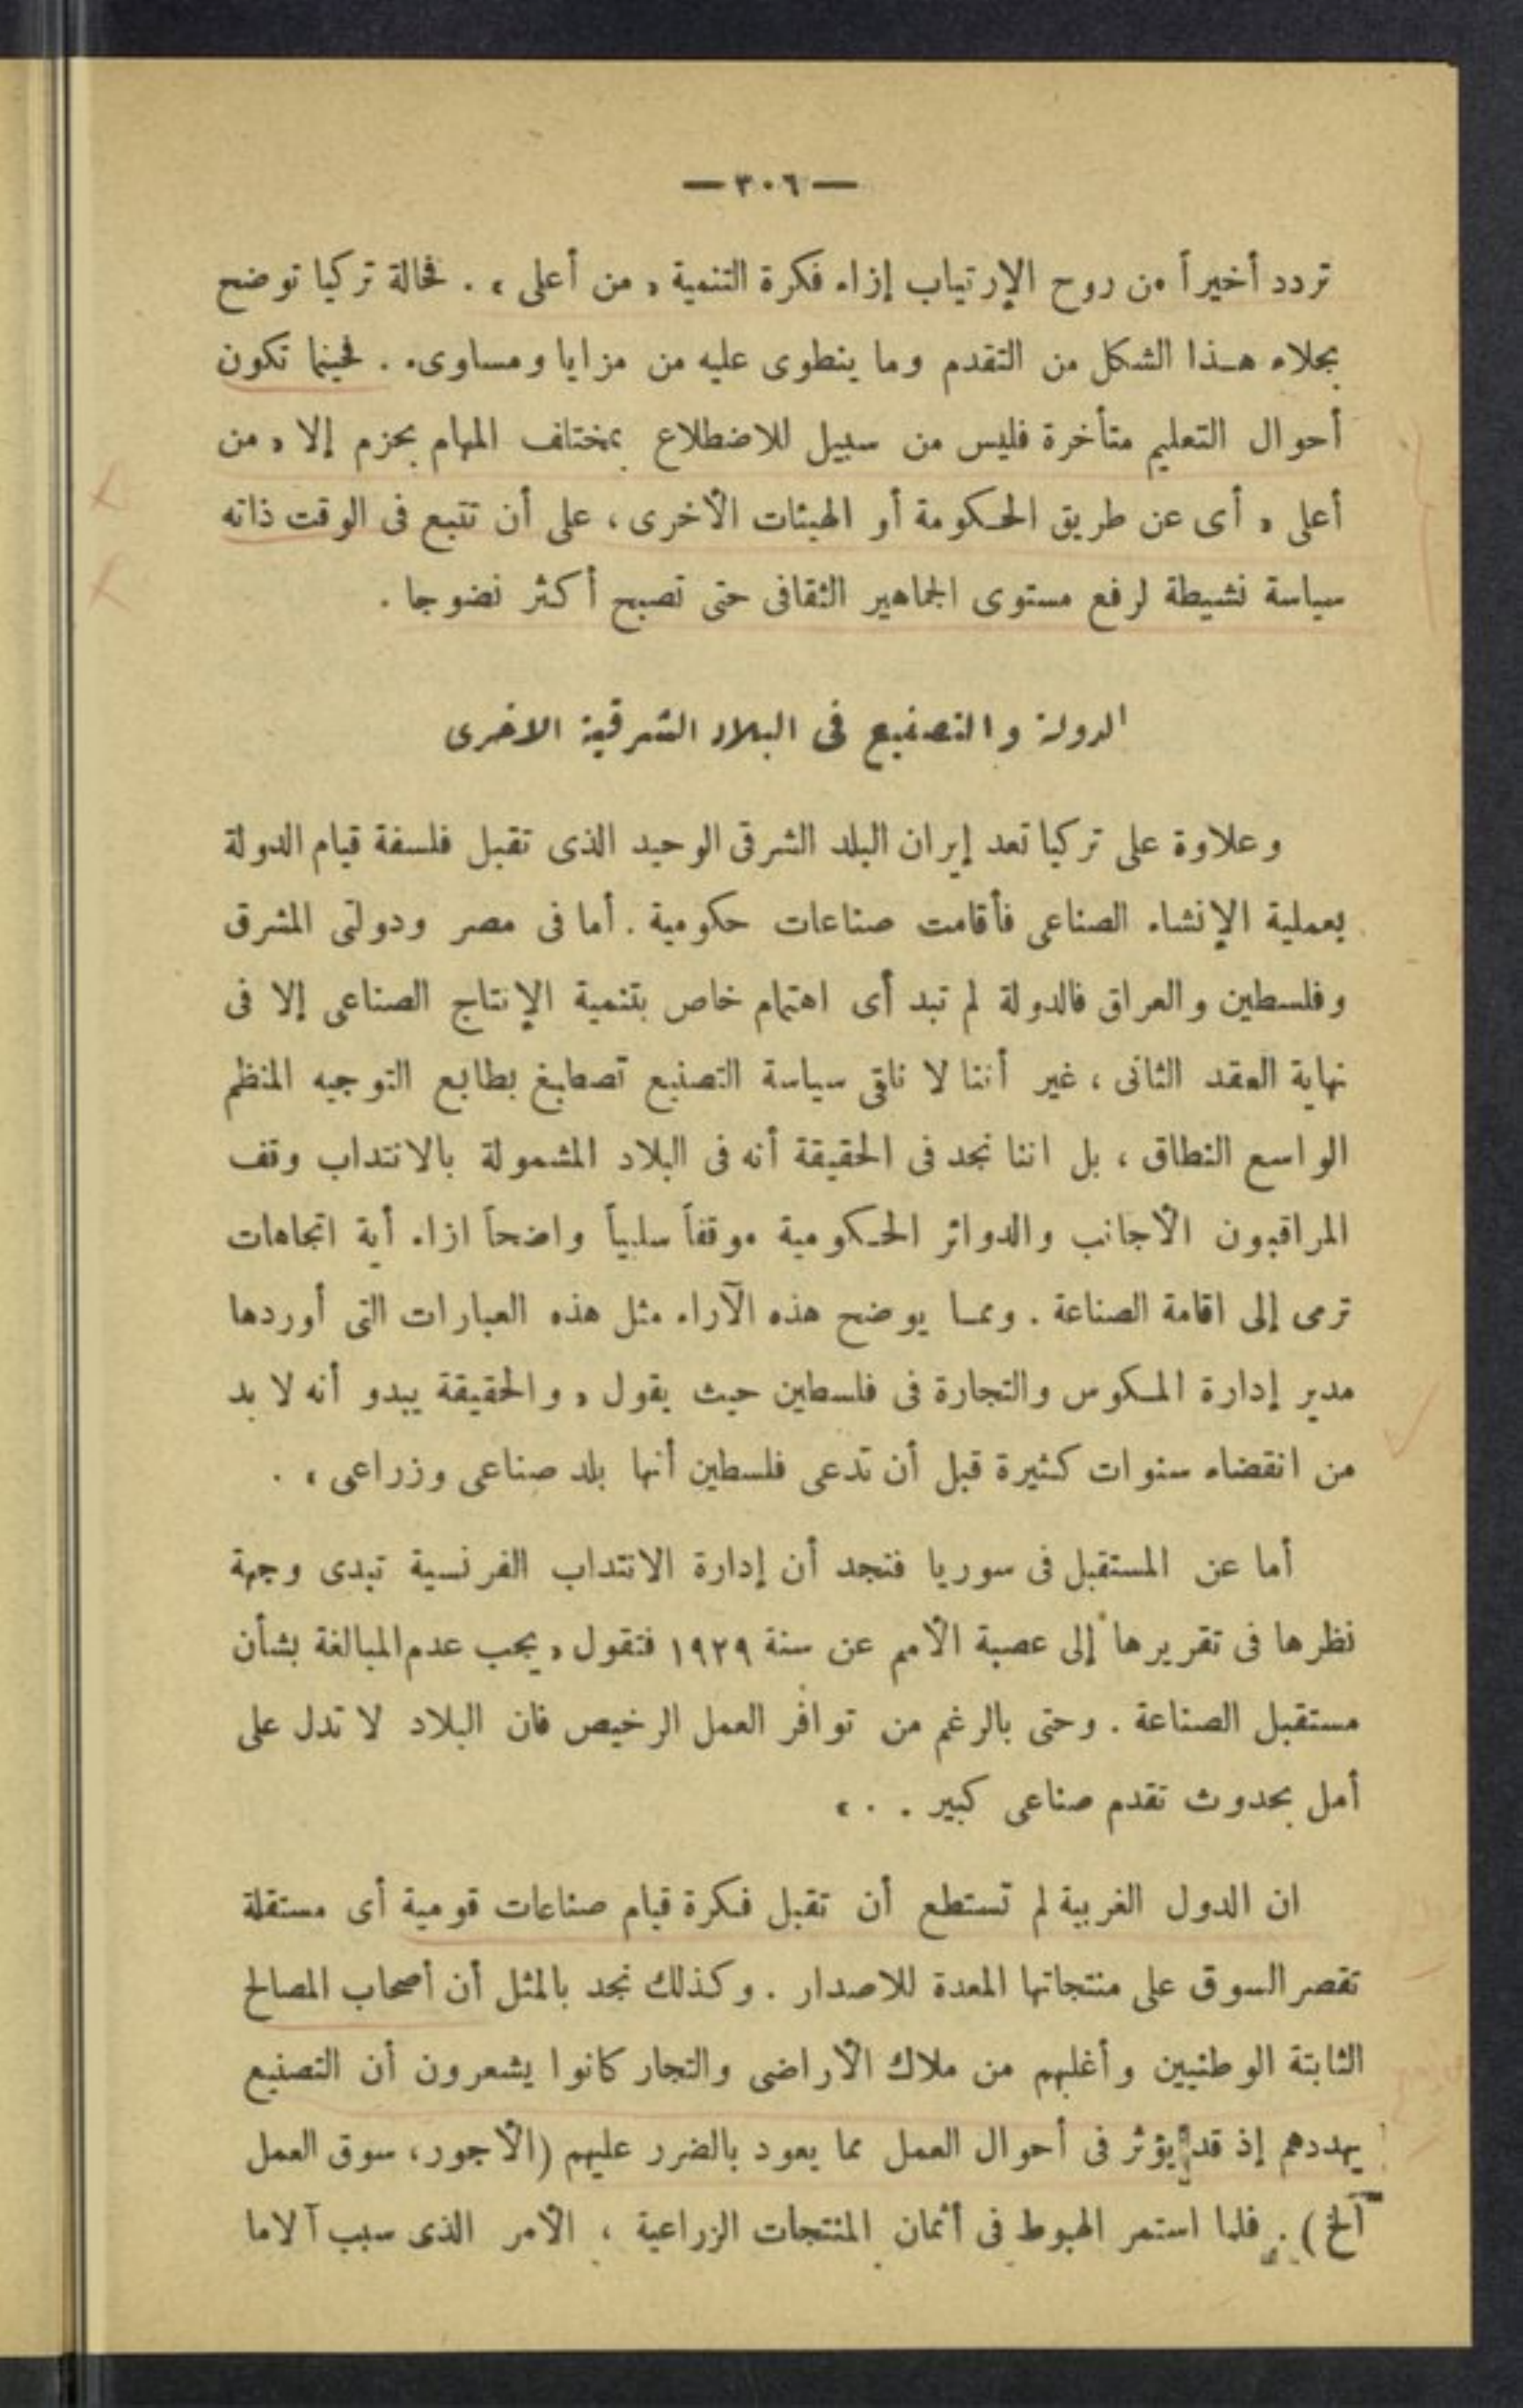 — ٣٠٦ —
تردد أخيراً من روح الإرتياب إزاء فكرة التنمية « من أعلى » . فحالة تركيا توضح
بجلاء هذا الشكل من التقدم وما ينطوى عليه من مزايا ومساوىء . فحينما تكون
أحوال التعليم متأخرة فليس من سبيل للاضطلاع بمختلف المهام بحزم إلا « من
أعلى » أى عن طريق الحكومة أو الهيئات الأخرى ، على أن تتبع فى الوقت ذاته
سياسة نشيطة لرفع مستوى الجماهير الثقافى حتى تصبح أكثر نضوجا .
الدولة والتصنيع فى البلاد الشرقية الاخرى
وعلاوة على تركيا تعد إيران البلد الشرقى الوحيد الذى تقبل فلسفة قيام الدولة
بعملية الإنشاء الصناعى فأقامت صناعات حكومية . أما فى مصر ودولتى المشرق
وفلسطين والعراق فالدولة لم تبد أى اهتمام خاص بتنمية الإنتاج الصناعى إلا فى
نهاية العقد الثانى ، غير أننا لا نلقى سياسة التصنيع تصطبغ بطابع التوجيه المنظم
الواسع النطاق ، بل اننا نجد فى الحقيقة أنه فى البلاد المشمولة بالانتداب وقف
المراقبون الأجانب والدوائر الحكومية موقفاً سلبياً واضحاً ازاء أية اتجاهات
ترمى إلى اقامة الصناعة . ومما يوضح هذه الآراء مثل هذه العبارات التى أوردها
مدير إدارة المكوس والتجارة فى فلسطين حيث يقول « والحقيقة يبدو أنه لا بد
من انقضاء سنوات كثيرة قبل أن تدعى فلسطين أنها بلد صناعى وزراعى » .
أما عن المستقبل فى سوريا فتجد أن إدارة الانتداب الفرنسية تبدى وجهة
نظرها فى تقريرها إلى عصبة الأمم عن سنة ١٩٢٩ فتقول « يجب عدم المبالغة بشأن
مستقبل الصناعة . وحتى بالرغم من توافر العمل الرخيص فان البلاد لا تدل على
أمل بحدوث تقدم صناعى كبير . . »
ان الدول الغربية لم تستطع أن تقبل فكرة قيام صناعات قومية أى مستقلة
تقصر السوق على منتجاتها المعدة للاصدار . وكذلك نجد بالمثل أن أصحاب المصالح
الثابتة الوطنيين وأغلبهم من ملاك الأراضى والتجار كانوا يشعرون أن التصنيع
يهددهم إذ قد يؤثر فى أحوال العمل مما يعود بالضرر عليهم (الأجور ، سوق العمل
الخ) . فلما استمر الهبوط فى أثمان المنتجات الزراعية ، الأمر الذى سبب آلاما